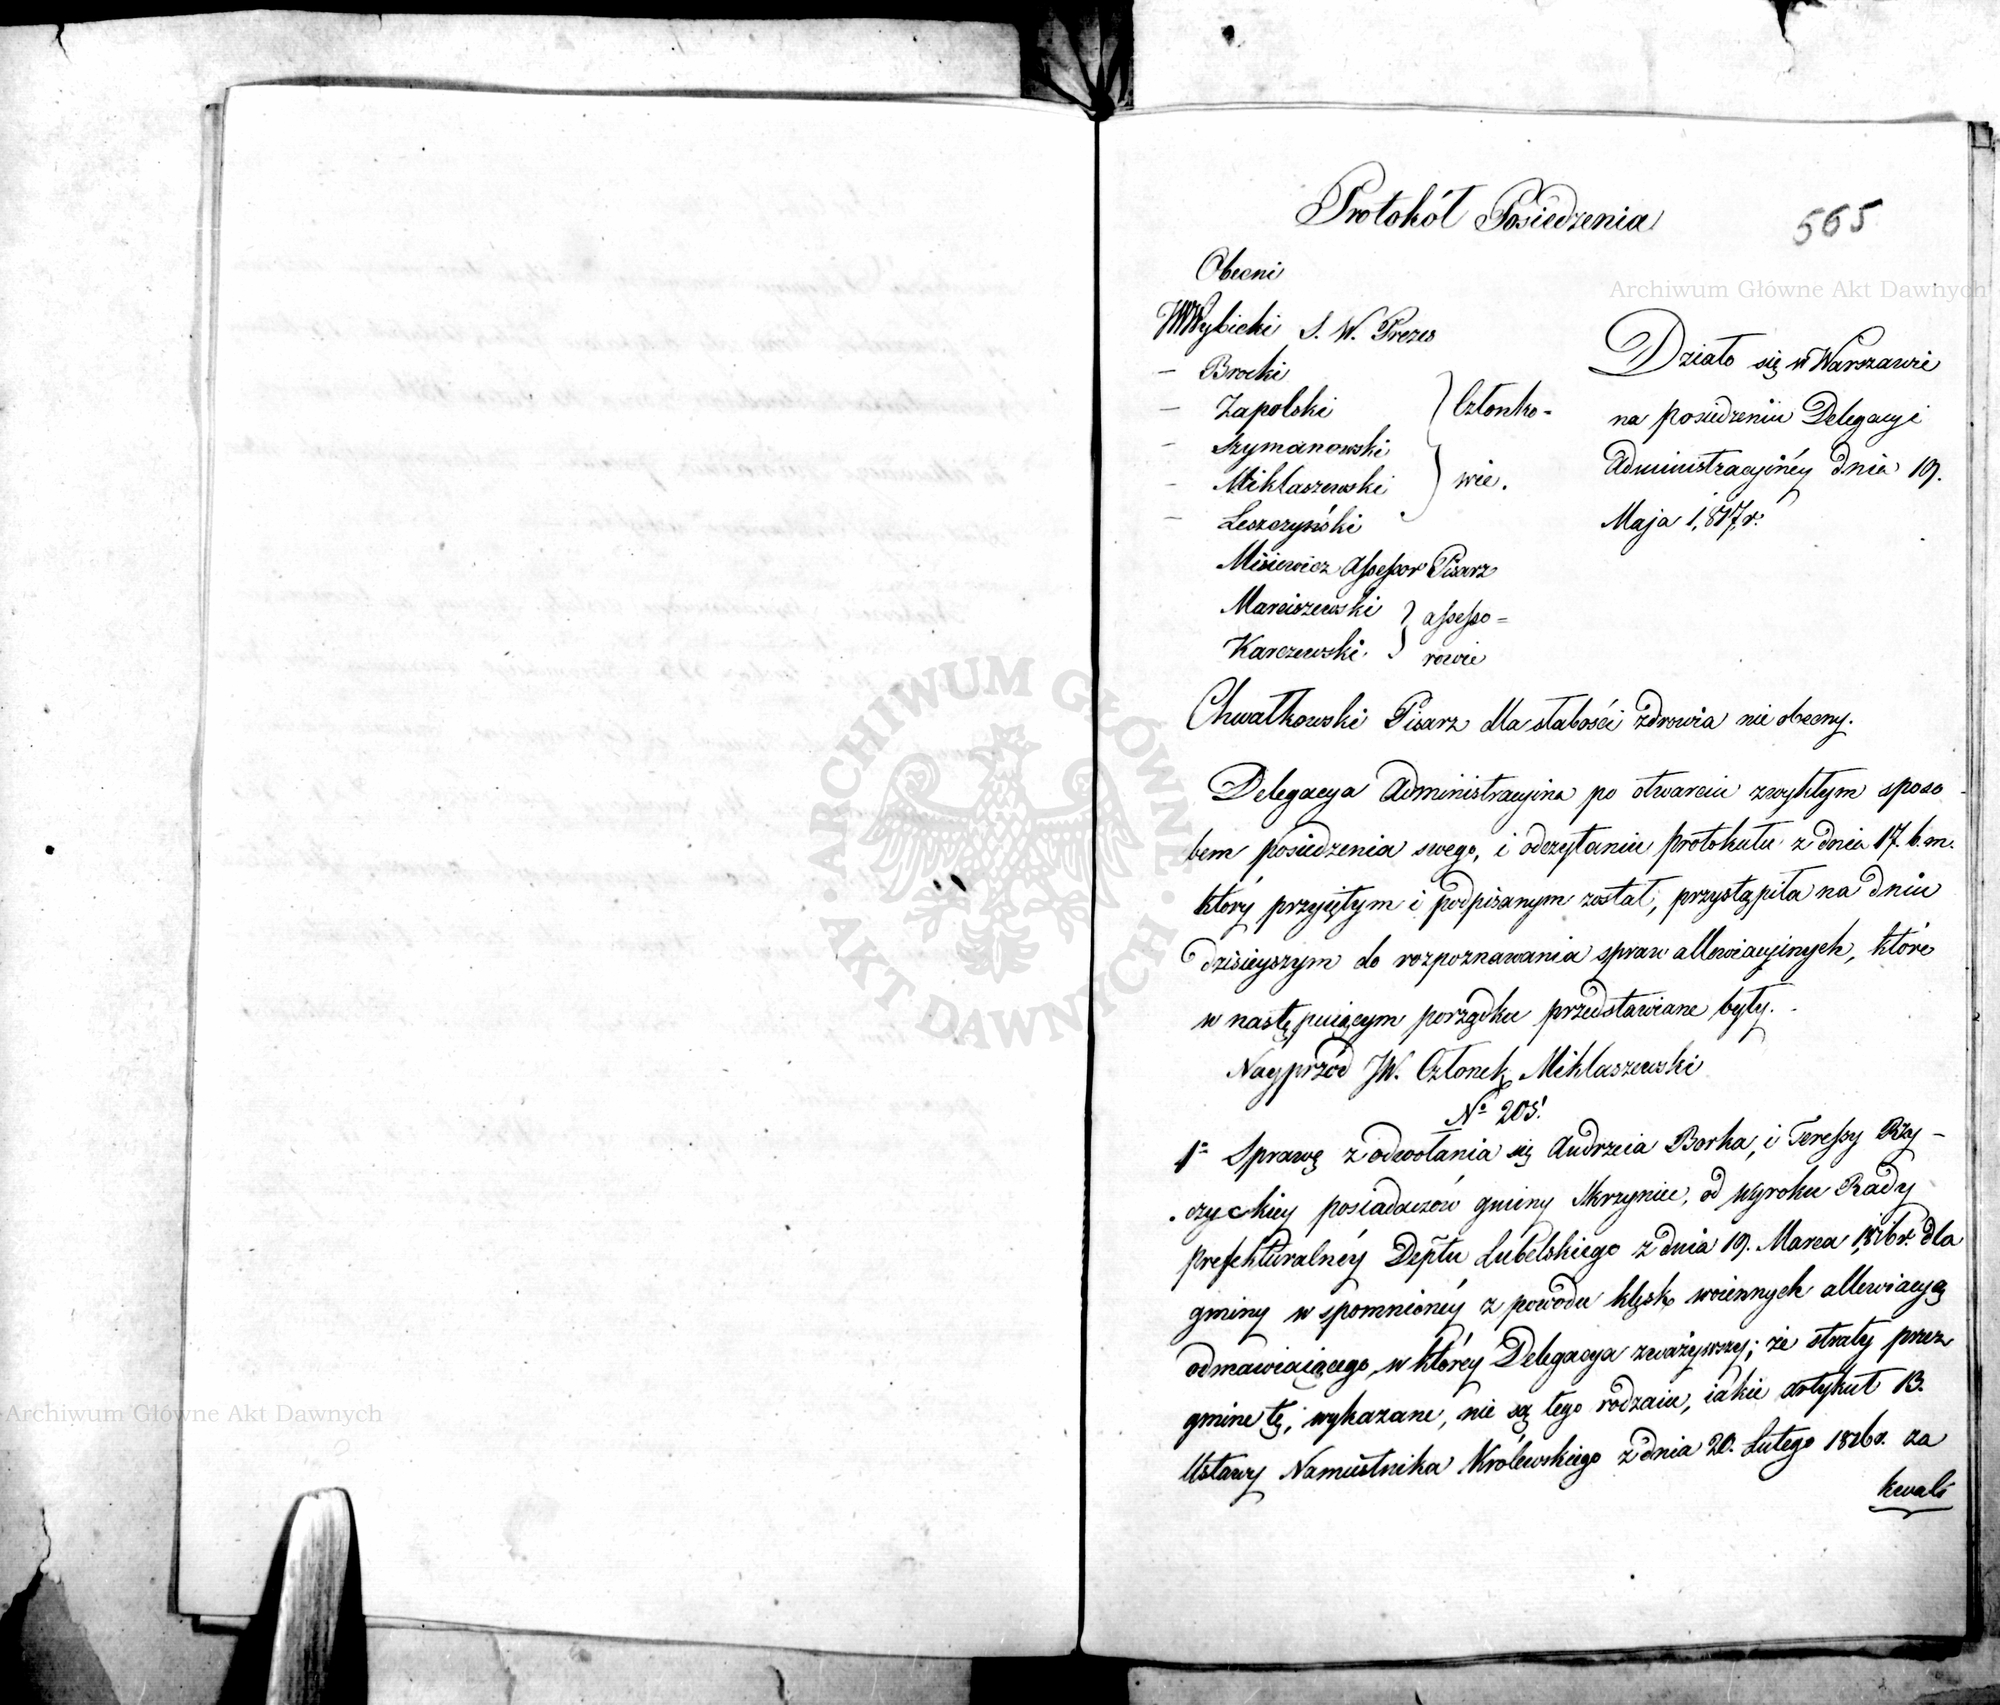 Protokół Posiedzenia
565
Obecni
JW Wybicki S. W. Prezes
— Brocki
— Zapolski } Członko=
— Szymanowski
— Miklaszewski } wie.
— Leszczyński
Misiewicz Assessor Pisarz
Marciszewski } assesso=
Karczewski. } rowie
Działo się w Warszawie
na posiedzeniu Delegacyi
Administracyinéy dnia 19.
Maja 1,817, r.
Chwałkowski Pisarz dla słabości zdrowia nie obecny.
Delegacya Administracyina po otwarciu zwykłym sposo-
bem posiedzenia swego, i odczytaniu protokułu z dnia 17. b. m.
który przyiętym i podpisanym został, przystąpiła na dniu
dzisieyszym do rozpoznawania spraw allewiacyinych, które
w następuiącym porządku przedstawiane były.
Nayprzód JW. Członek Miklaszewski
No 205.
1o Sprawę z odwołania się Andrzeia Borka, i Teressy Rzy-
czyckiey posiadaczów gminy Skrzynice, od wyroku Rady
prefekturalnéy Deptu Lubelskiego z dnia 19. Marca 1,816 r. dla
gminy wspomnionéy z powodu klęsk woiennych allewiacyą
odmawiaiącego, w któréy Delegacya zważywszy; że straty przez
gminę tę, wykazane, nie są tego rodzaiu, iakie artykuł 13.
Ustawy Namiestnika Królewskiego z dnia 20. Lutego 1816 r. za
kwali
Archiwum Główne Akt Dawnych
Archiwum Główne Akt Dawnych
ARCHIWUM GŁÓWNE AKT DAWNYCH